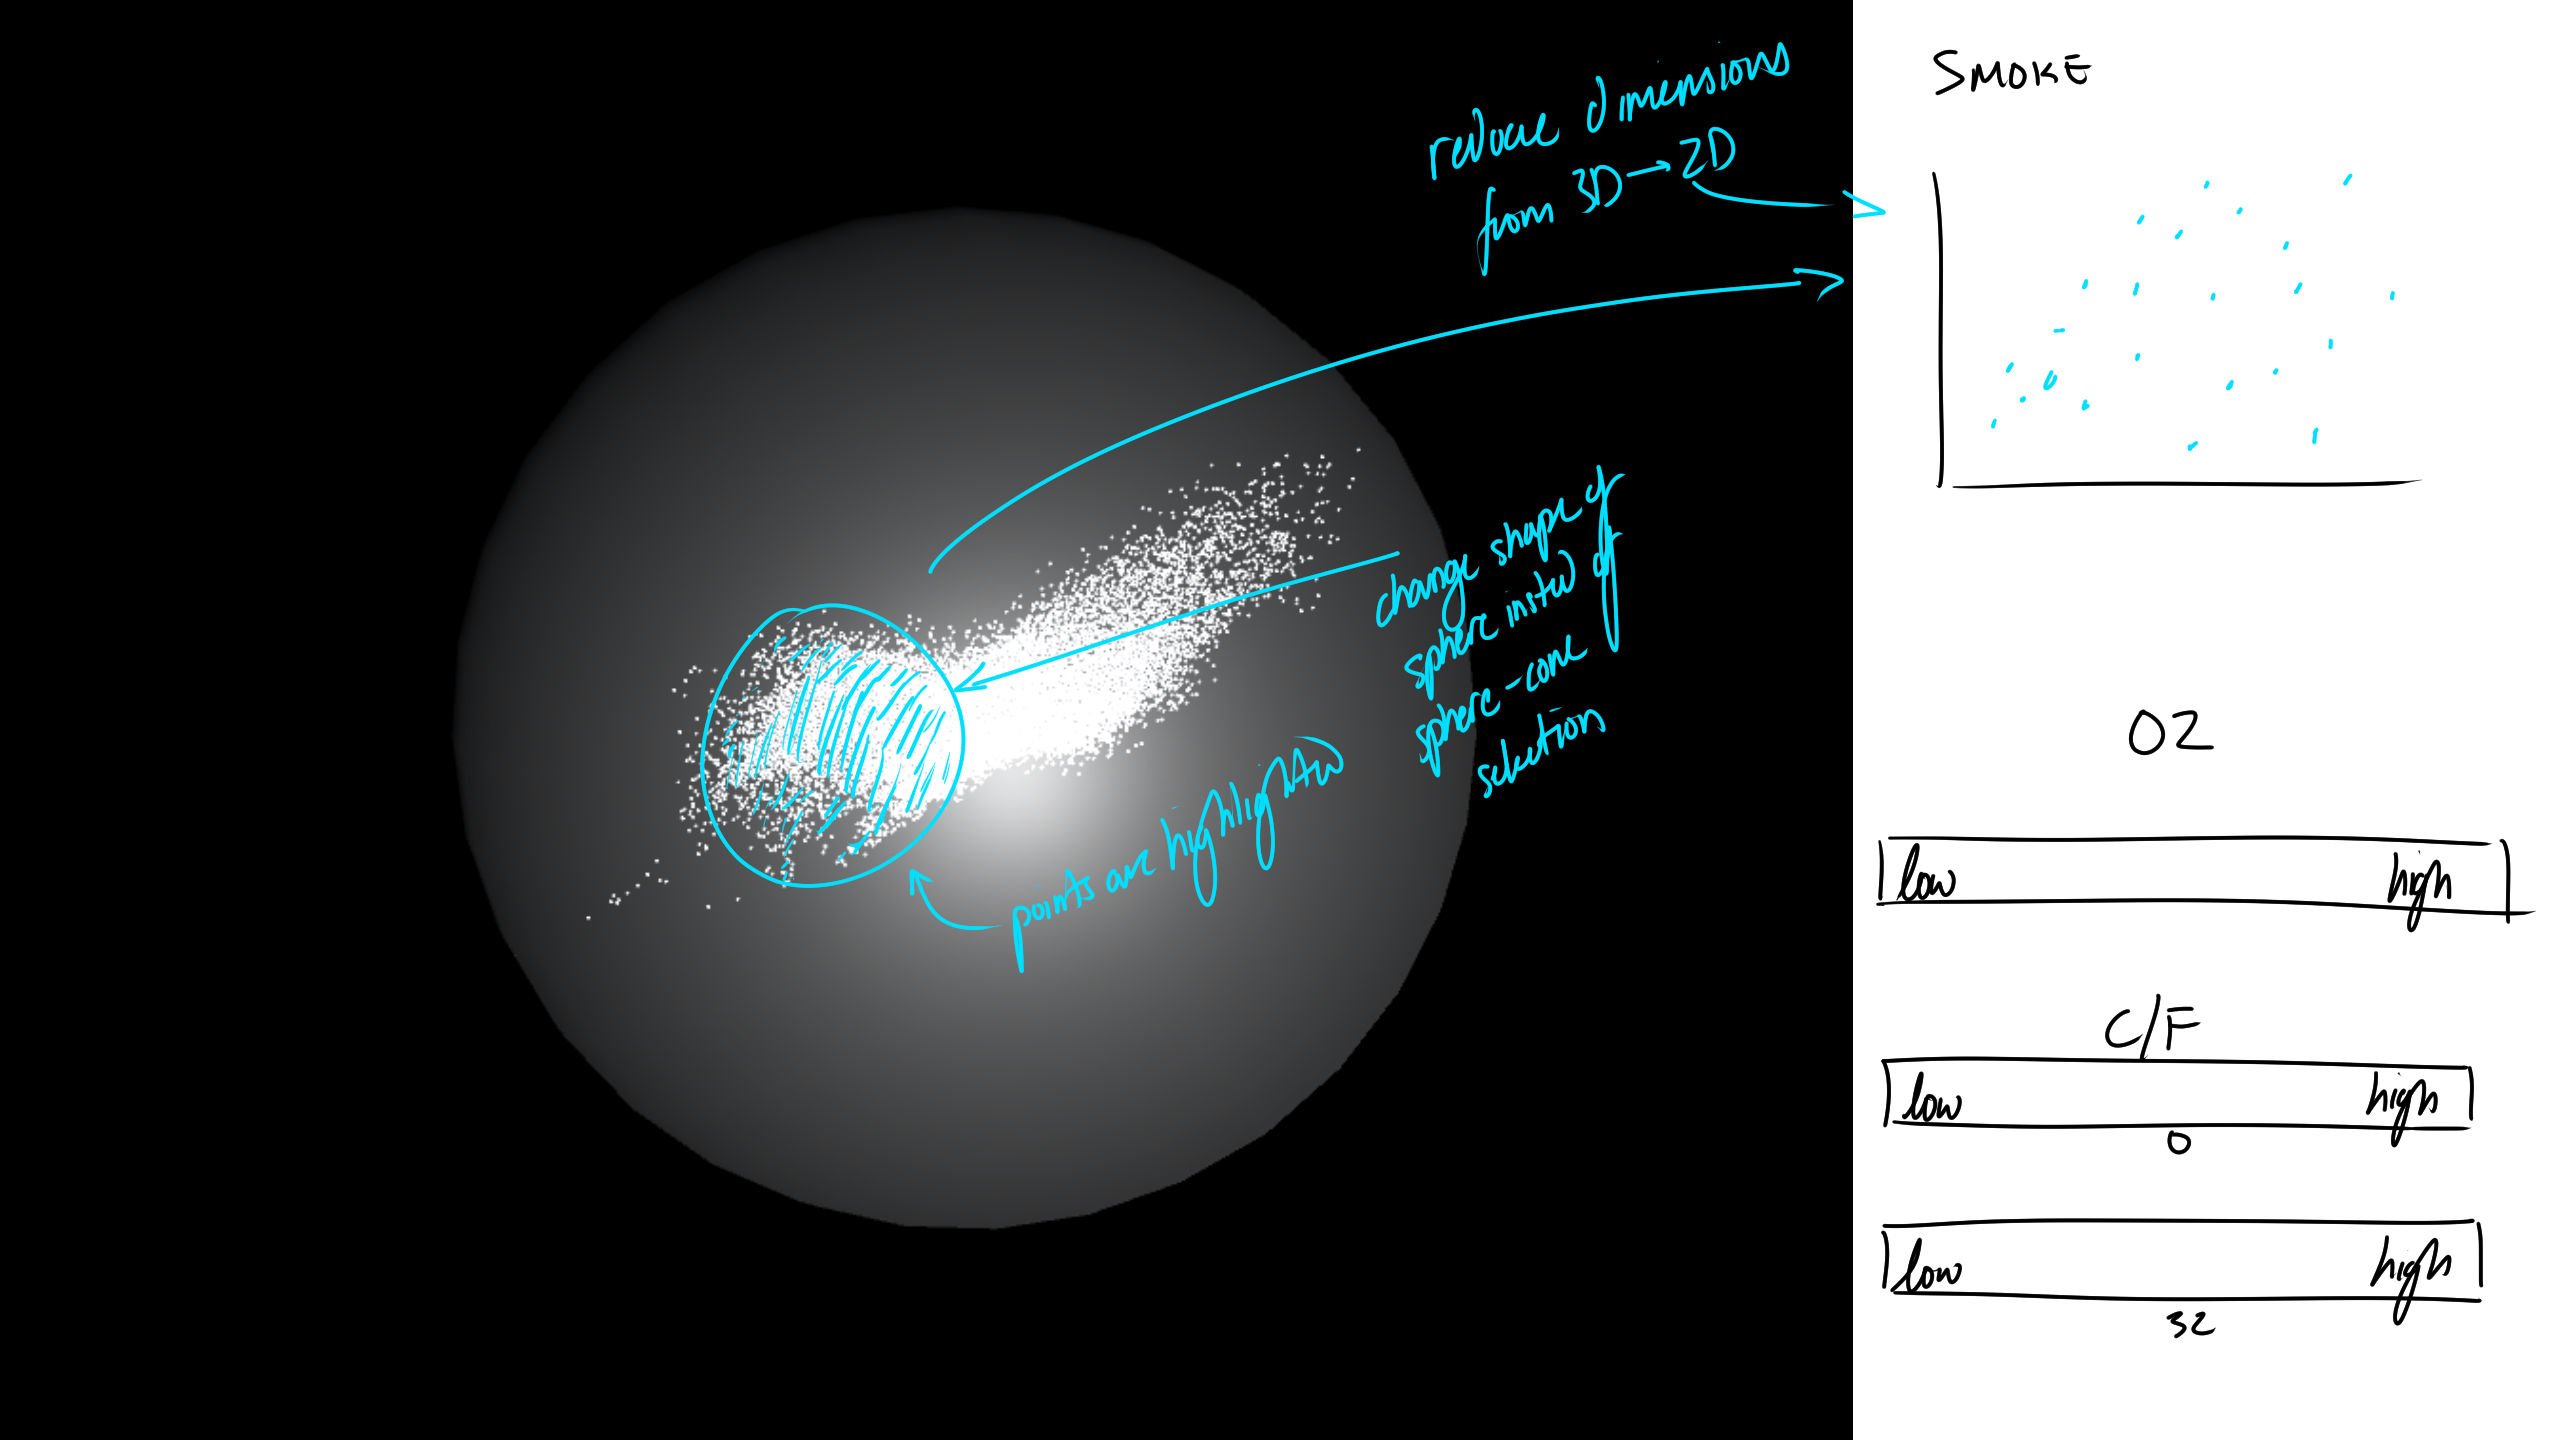 reduce dimensions
from 3D → 2D
change shape of
sphere instead of
sphere-cone
selection
points are highlighted
SMOKE
O2
low high
C/F
low high
0
low high
32